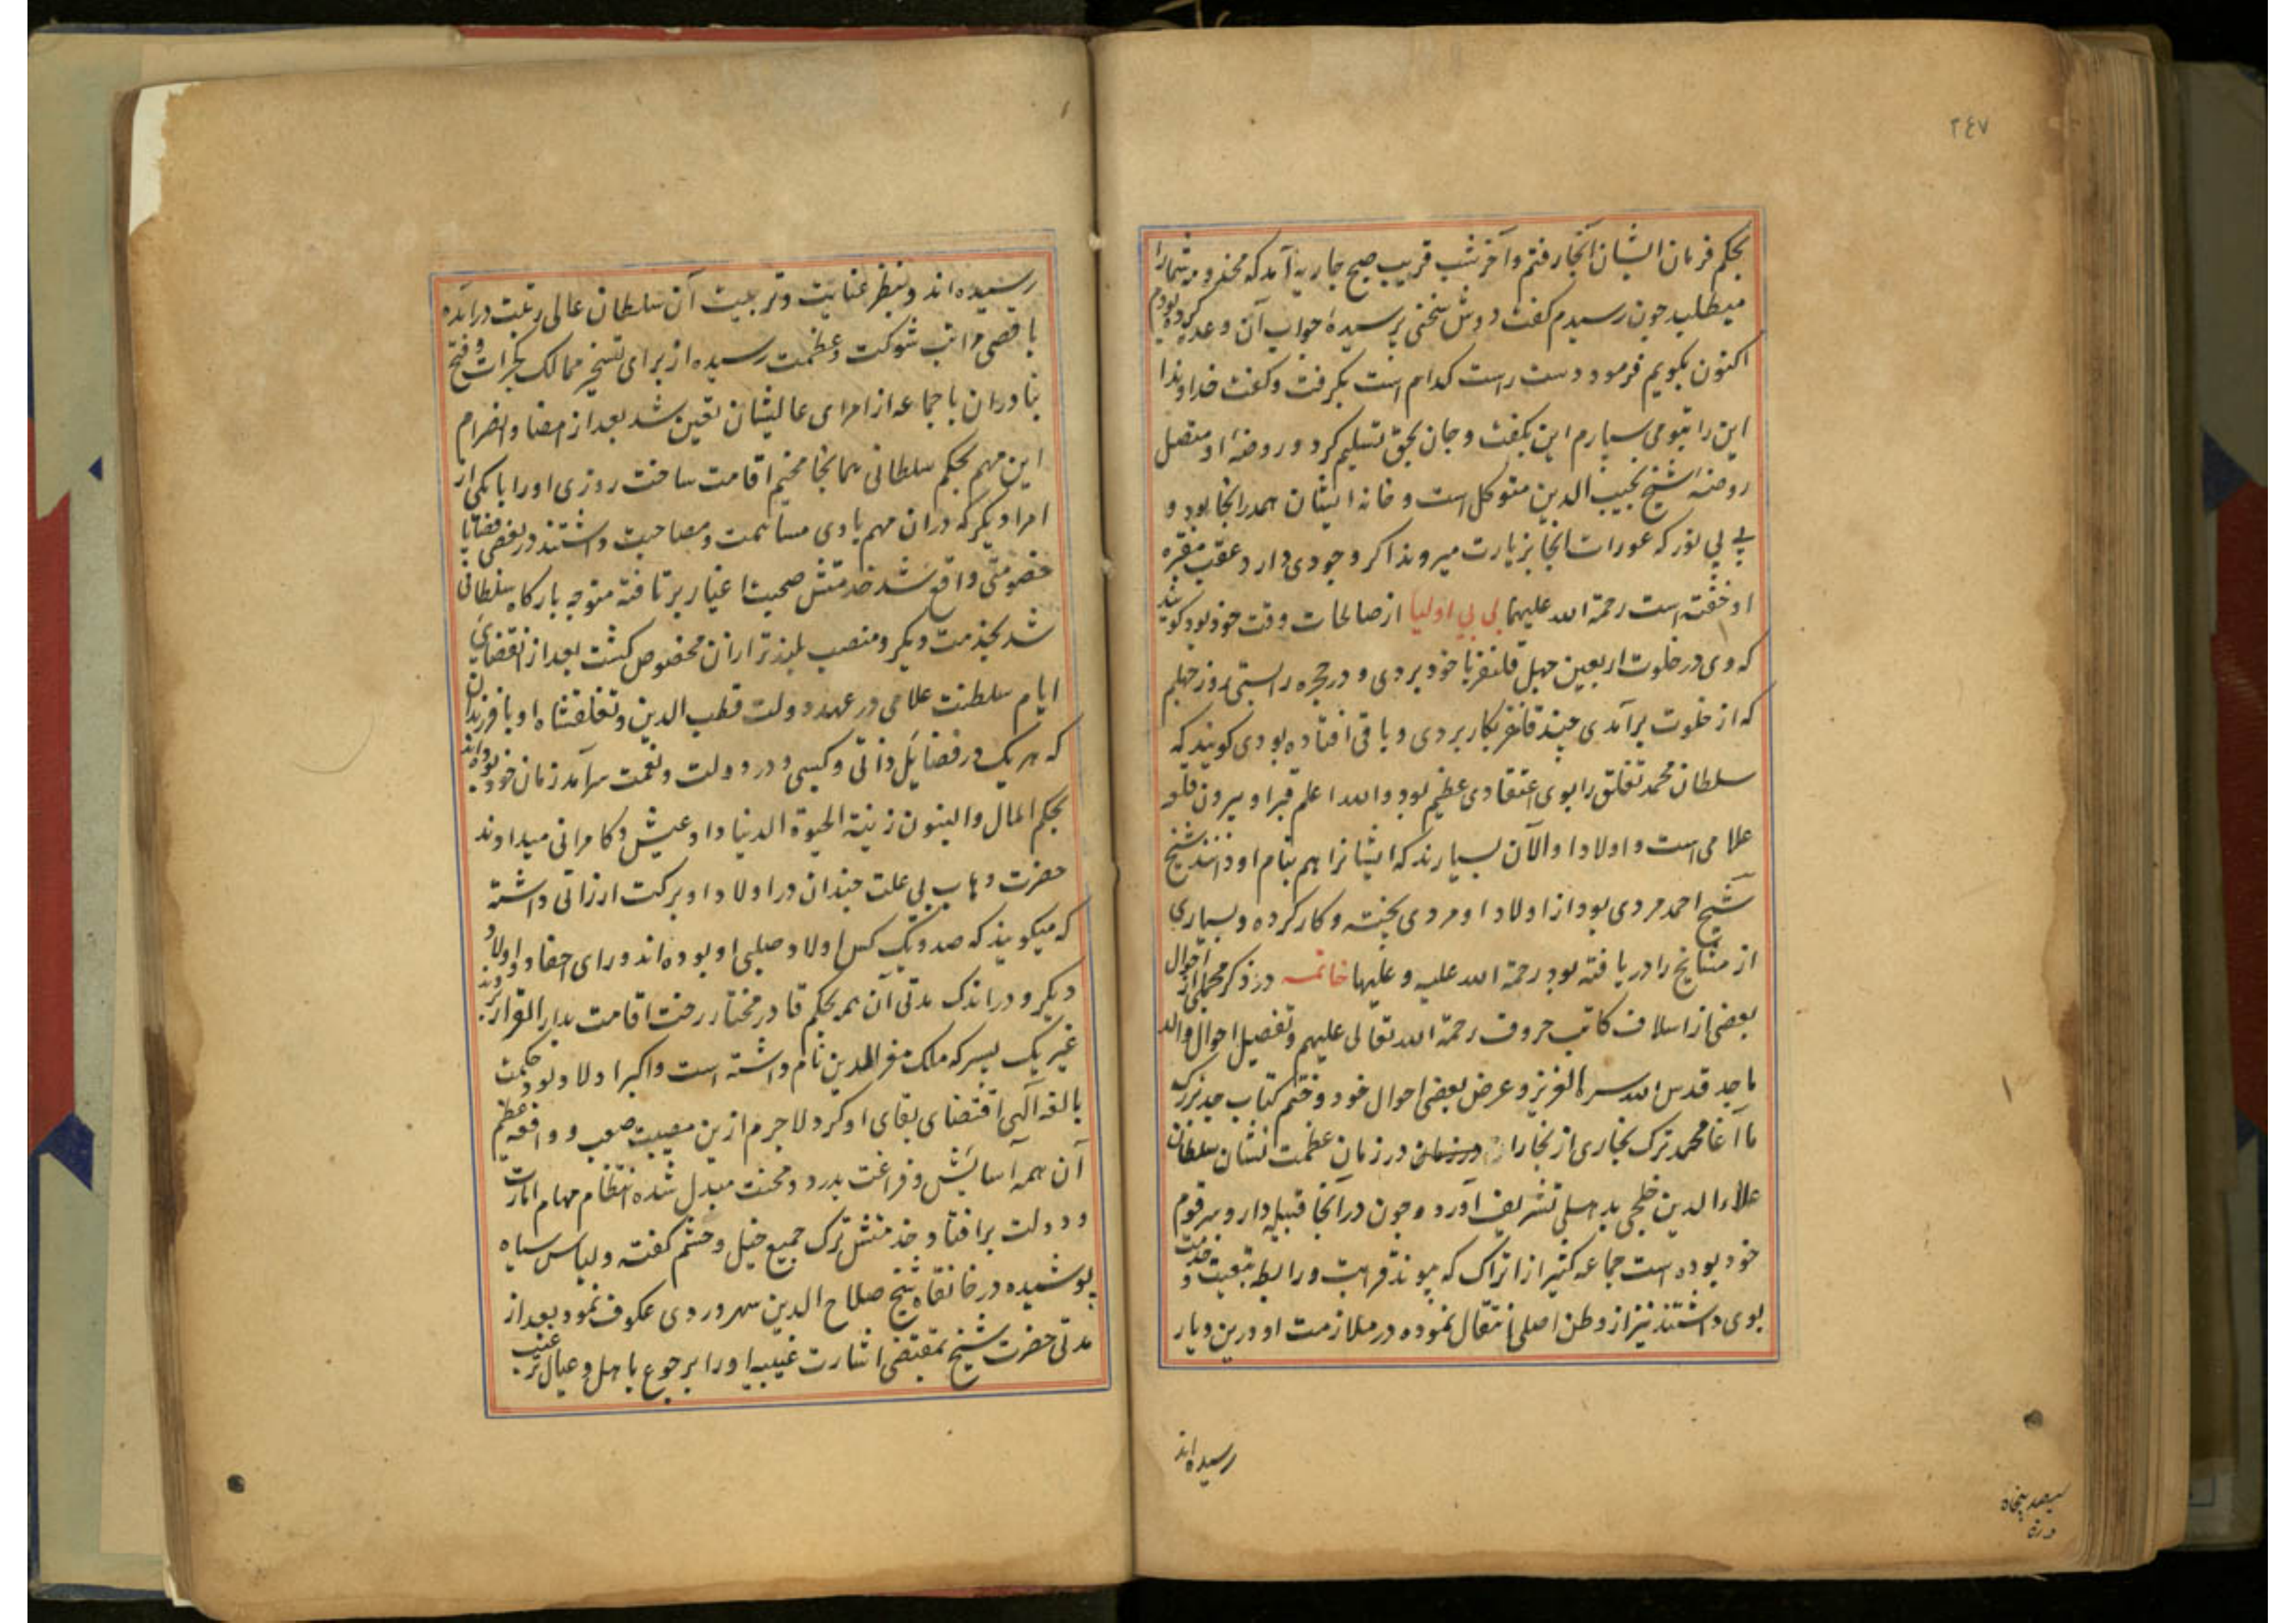 ٢٤٧
بحکم فرمان ایشان آنجا رفتم و آخر شب قریب صبح جاریه آمد که مخدومه شما را
میطلبد چون رسیدم کفت دوش سخنی پرسیدهٔ جواب آن وعده کرده بودم
اکنون بکویم فرمود دست راست کدام است بکرفت و کفت خداوندا
این را بتو می سپارم این بکفت و جان بحق تسلیم کرد و روضهٔ او متصل
روضهٔ شیخ نجیب الدین متوکل است و خانه ایشان همدرانجا بود و
بی بی نور که عورات آنجا بزیارت میروند اکر وجودی دارد عقب مقبره
او خفته است رحمة الله علیهما بی بی اولیا از صالحات وقت خود بود کویند
که وی در خلوت اربعین چهل قلنفر با خود بردی و در حجره راستی روز چهلم
که از خلوت برآمدی چند قلنفر بکار بردی و باقی افتاده بودی کویند که
سلطان محمد تغلق را بوی اعتقادی عظیم بود والله اعلم قبر او بیرون قلعه
علامی است و اولاد او الآن بسیارند که ایشانرا هم بنام او دانند شیخ
شیخ احمد مردی بود از اولاد او مردی پخته و کار کرده و بسیاری
از مشایخ را دریافته بود رحمة الله علیه و علیها خاتمه در ذکر مجملی از احوال
بعضی از اسلاف کاتب حروف رحمة الله تعالی علیهم و تفصیل احوال والد
ماجد قدس الله سره العزیز و عرض بعضی احوال خود و ختم کتاب جد بزرک
ما آغا محمد ترک بخاری از بخارا در زمان عظمت نشان سلطان
علاء الدین خلجی بدهلی تشریف آورد و چون در آنجا قبیله دار و سر قوم
خود بوده است جماعه کثیر از اتراک که پیوند قرابت و رابطه تبعیت و خدمت
بوی داشتند نیز از وطن اصلی انتقال نموده در ملازمت او درین دیار
رسیده اند
سیصد پنجاه
رسیده اند و بنظر عنایت و تربیت آن سلطان عالی رتبت درآمده
باقصی مراتب شوکت و عظمت رسیده از برای تسخیر ممالک کجرات و فتح
بنادر آن با جماعه از امرای عالیشان تعین شد بعد از امضا و انصرام
این مهم بحکم سلطانی همانجا مخیم اقامت ساخت روزی او را با یکی از
امراء دیکر که دران مهم با وی مساهمت و مصاحبت داشتند در بعضی قضایا
خصومتی واقع شد خدمتش صحبت اغیار برتافته متوجه بارکاه سلطانی
شد بخدمت دیکر و منصب بلندتر ازان مخصوص کشت بعد از انقضای
ایام سلطنت علامی در عهد دولت قطب الدین و تغلقشاه او با فرزندان
که هر یک در فضایل ذاتی و کسبی و در دولت و نعمت سرآمد زمان خود بوده اند
بحکم المال والبنون زینة الحیوة الدنیا داد عیش و کامرانی میدادند
حضرت وهاب بی علت چندان در اولاد او برکت ارزانی داشته
که میکویند که صد و یک کس اولاد صلبی او بوده اند ورای احفاد و اولاد
دیکر و در اندک مدتی آن همه بحکم قادر مختار رخت اقامت بدار القرار بردند
غیر یک پسر که ملک معز الدین نام داشته است و اکبر اولاد بود حکمت
بالغه آلهی اقتضای بقای او کرد لاجرم ازین مصیبت صعب و واقعه عظیم
آن همه آسایش و فراغت بدرد و محنت مبدل شده انتظام مهام امارت
و دولت برافتاد و خدمتش ترک جمیع خیل و حشم کفته و لباس سیاه
پوشیده در خانقاه شیخ صلاح الدین سهروردی عکوف نمود بعد از
مدتی حضرت شیخ بمقتضی اشارت غیبیه او را برجوع باهل و عیال ترغیب